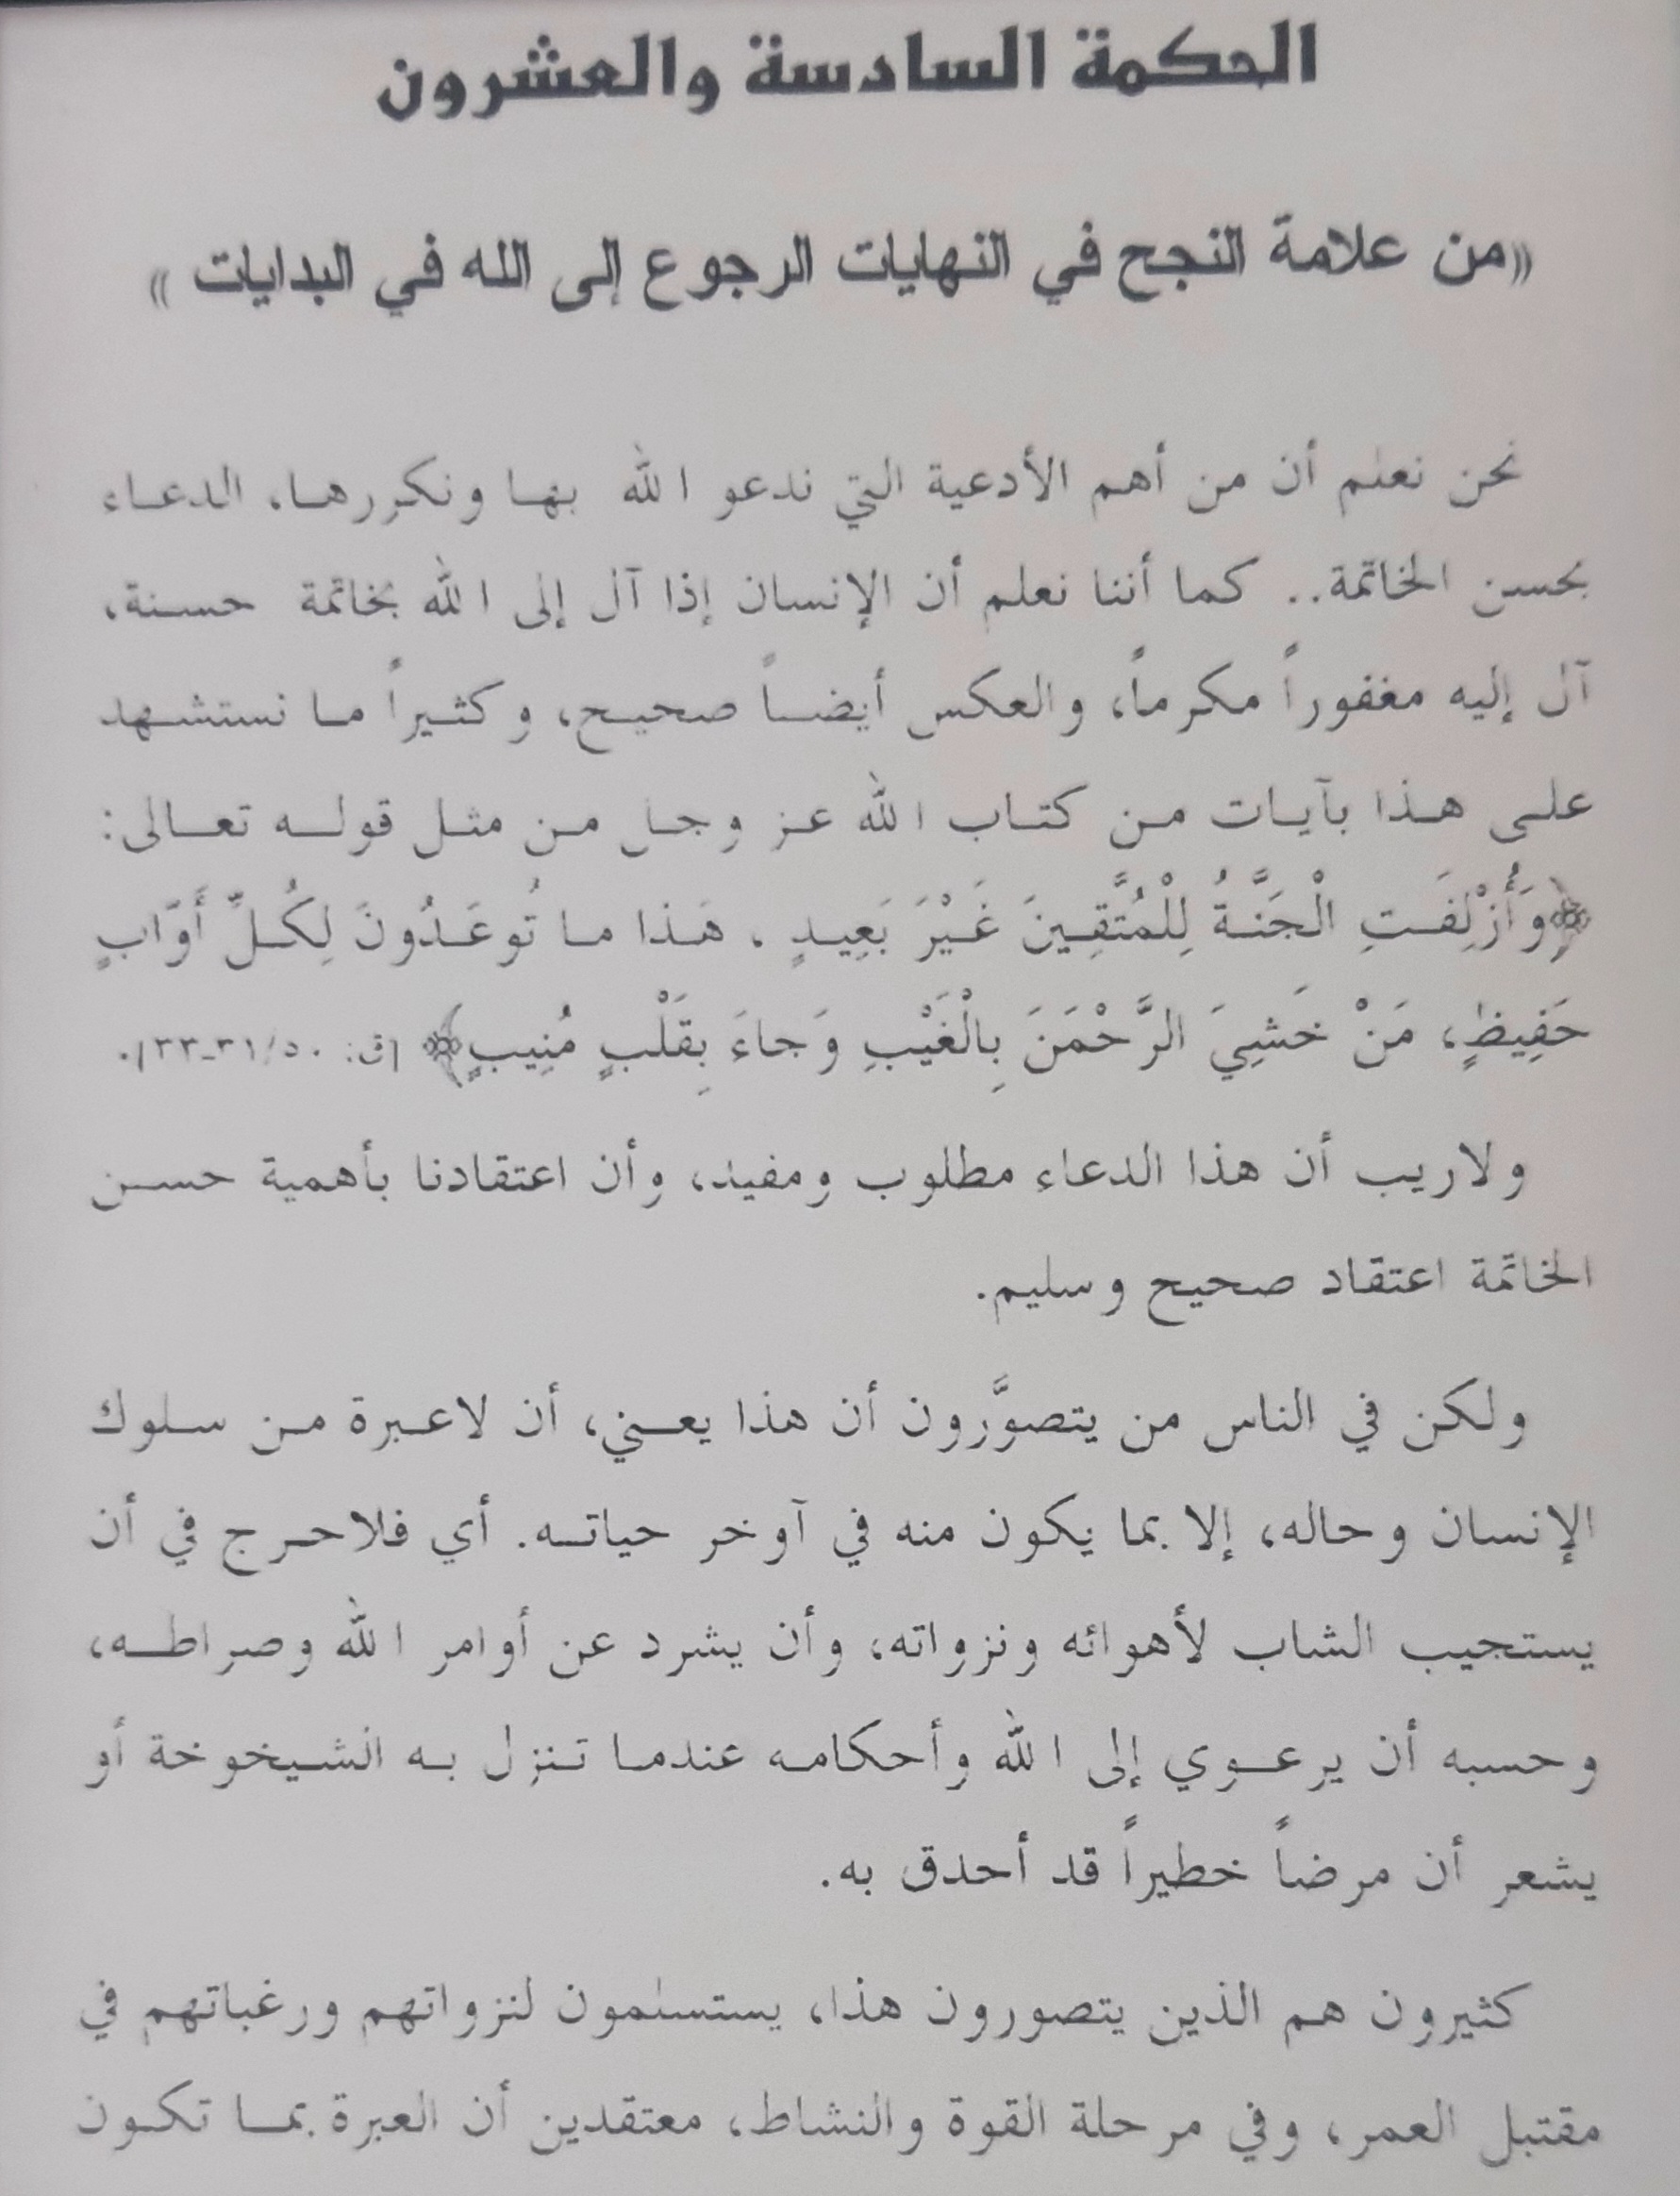 الحكمة السادسة والعشرون
«من علامة النجح في النهايات الرجوع إلى الله في البدايات»
نحن نعلم أن من أهم الأدعية التي ندعو الله بها ونكررها، الدعاء
بحسن الخاتمة.. كما أننا نعلم أن الإنسان إذا آل إلى الله بخاتمة حسنة،
آل إليه مغفوراً مكرماً، والعكس أيضاً صحيح، وكثيراً ما نستشهد
على هذا بآيات من كتاب الله عز وجل من مثل قوله تعالى:
﴿وَأُزْلِفَتِ الْجَنَّةُ لِلْمُتَّقِينَ غَيْرَ بَعِيدٍ . هَذا ما تُوعَدُونَ لِكُلِّ أَوّابٍ
حَفِيظٍ، مَنْ خَشِيَ الرَّحْمَنَ بِالْغَيْبِ وَجاءَ بِقَلْبٍ مُنِيبٍ﴾ [ق: ٥٠/٣١-٣٣].
ولاريب أن هذا الدعاء مطلوب ومفيد، وأن اعتقادنا بأهمية حسن
الخاتمة اعتقاد صحيح وسليم.
ولكن في الناس من يتصوَّرون أن هذا يعني، أن لاعبرة من سلوك
الإنسان وحاله، إلا بما يكون منه في آوخر حياته. أي فلاحرج في أن
يستجيب الشاب لأهوائه ونزواته، وأن يشرد عن أوامر الله وصراطه،
وحسبه أن يرعوي إلى الله وأحكامه عندما تنزل به الشيخوخة أو
يشعر أن مرضاً خطيراً قد أحدق به.
كثيرون هم الذين يتصورون هذا، يستسلمون لنزواتهم ورغباتهم في
مقتبل العمر، وفي مرحلة القوة والنشاط، معتقدين أن العبرة بما تكون